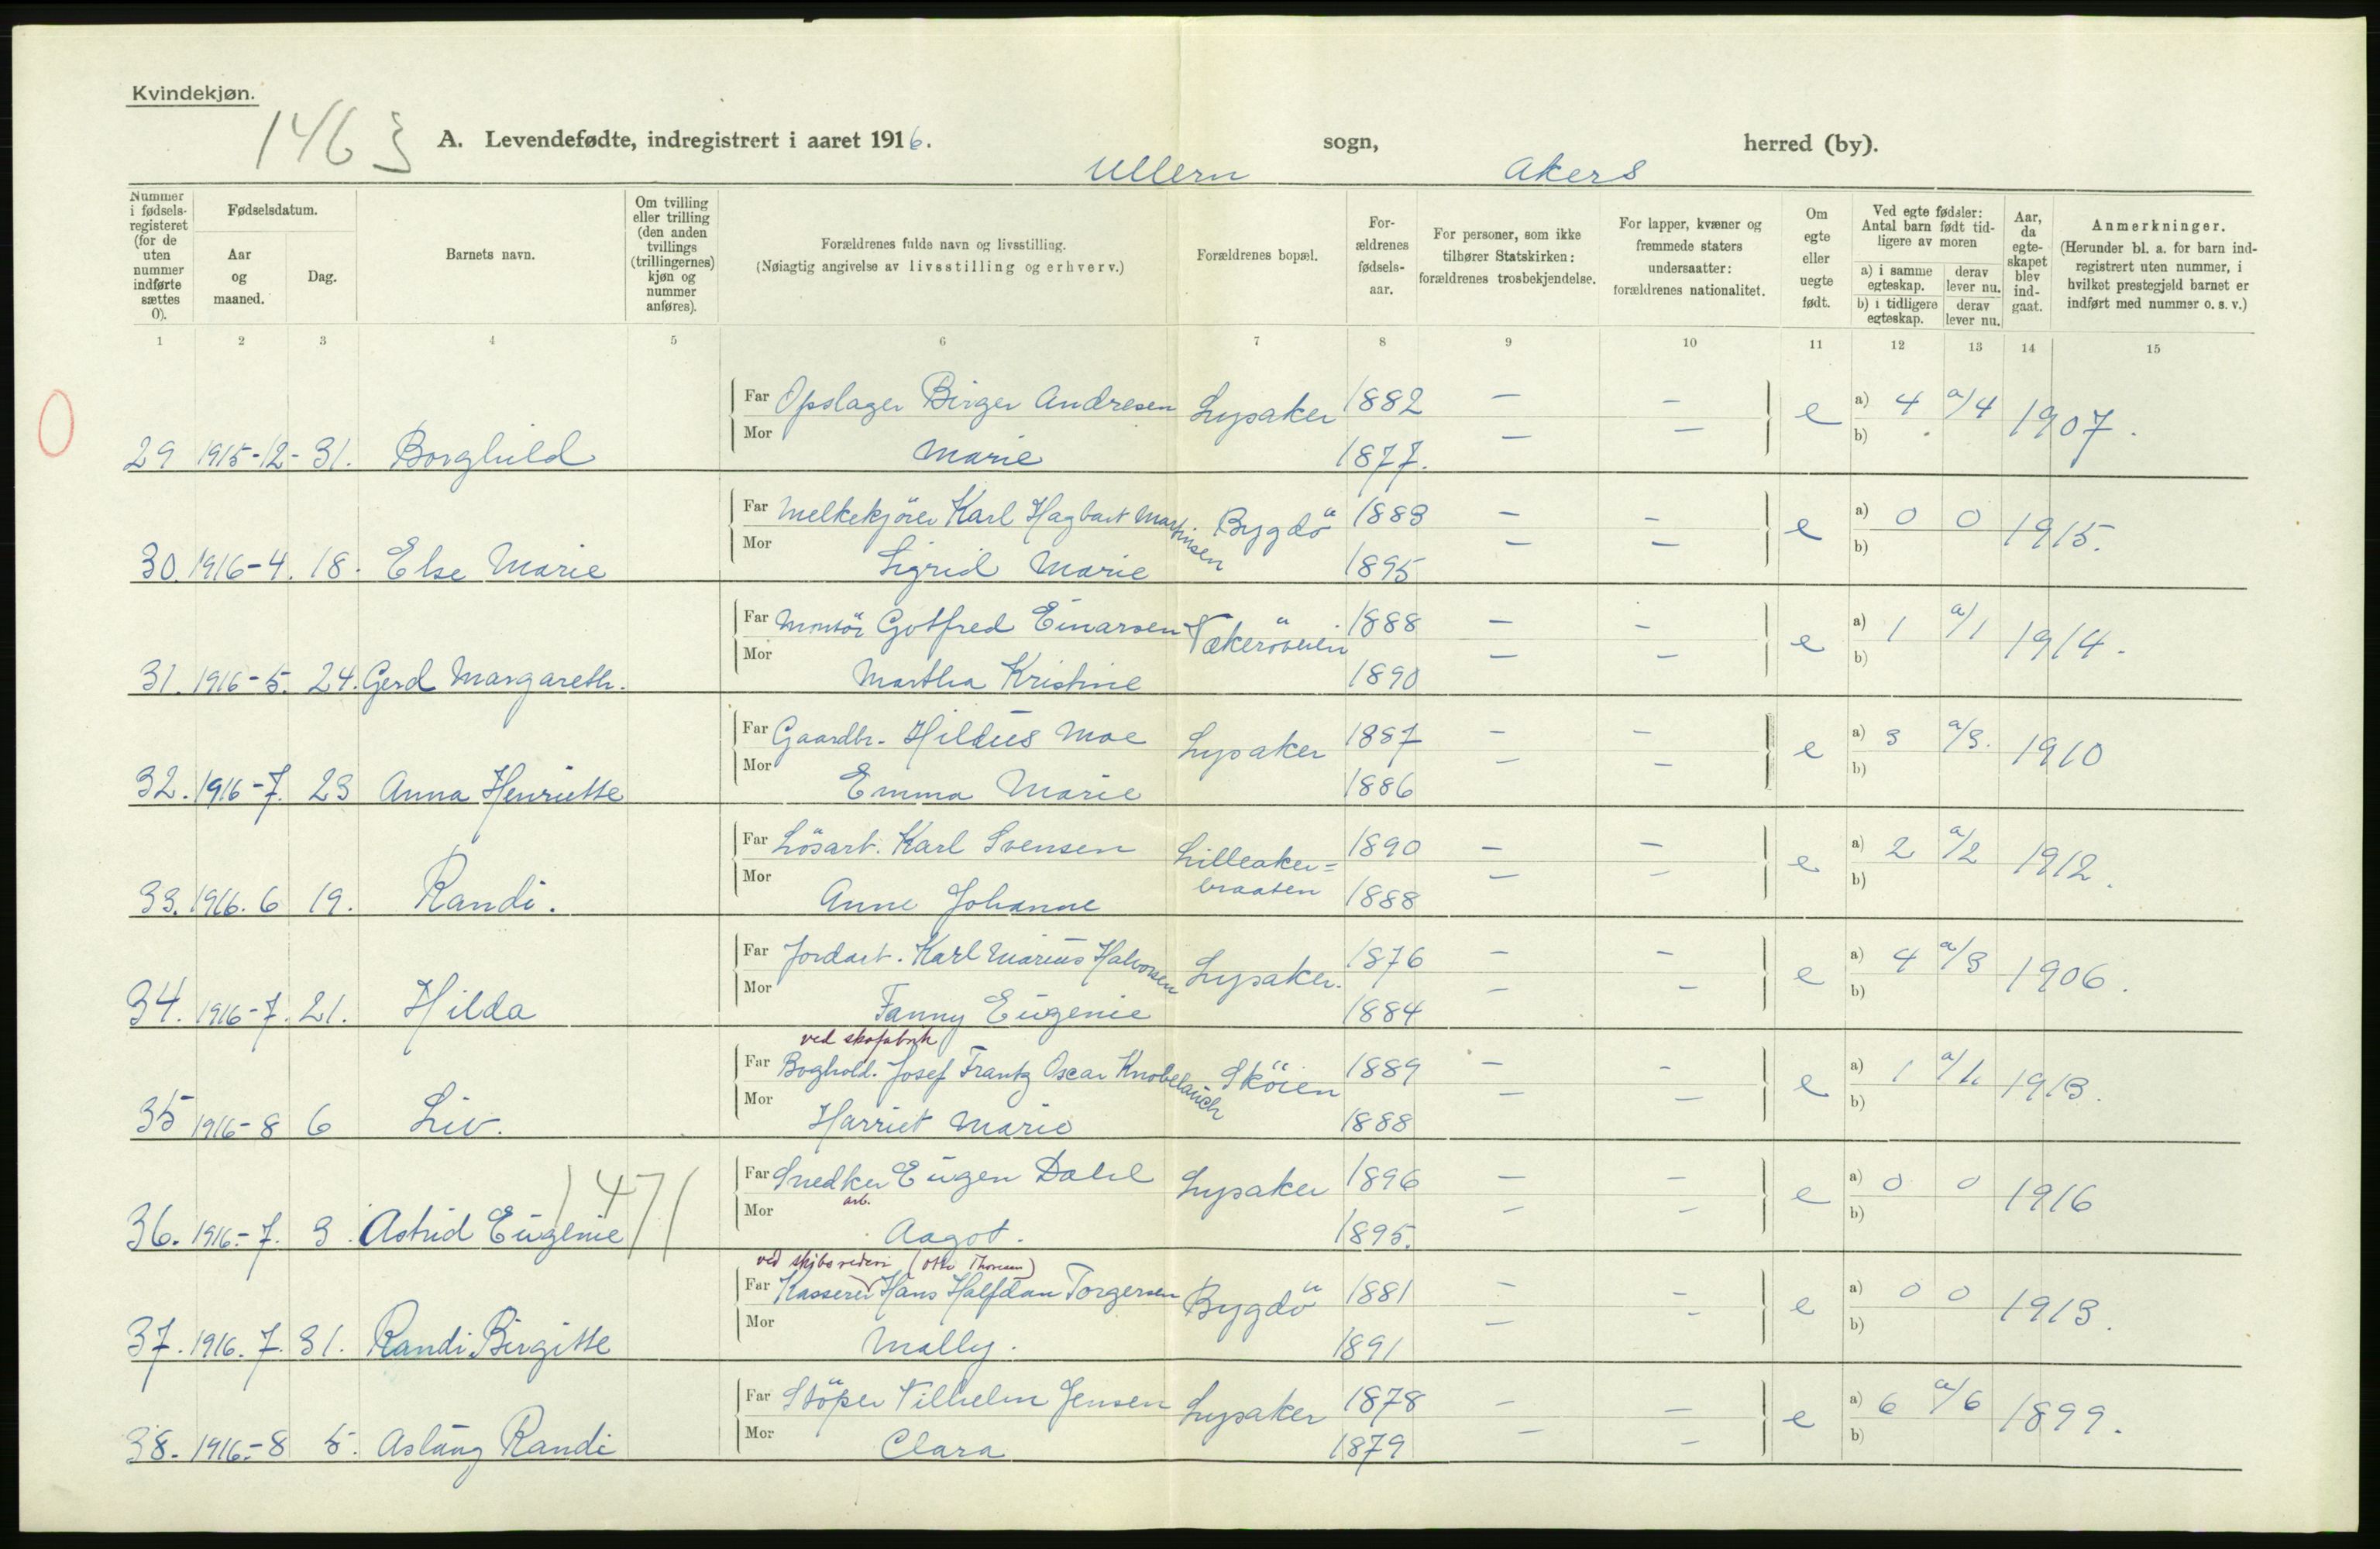 Kvindekjøn.
1463
A. Levendefødte, indregistrert i aaret 1916. Ullern sogn, Akers herred (by).
Nummer i fødsels-registeret (for de uten nummer indførte sættes 0).
Fødselsdatum.
Aar og maaned.
Dag.
Barnets navn.
Om tvilling eller trilling (den anden tvillings (trillingernes) kjøn og nummer anføres).
Forældrenes fulde navn og livsstilling.
(Nøiagtig angivelse av livsstilling og erhverv.)
Forældrenes bopæl.
For-ældrenes fødsels-aar.
For personer, som ikke tilhører Statskirken: forældrenes trosbekjendelse.
For lapper, kvæner og fremmede staters undersaatter: forældrenes nationalitet.
Om egte eller uegte født.
Ved egte fødsler: Antal barn født tid-ligere av moren
a) i samme egteskap. derav lever nu.
b) i tidligere egteskap. derav lever nu.
Aar, da egte-skapet blev ind-gaat.
Anmerkninger.
(Herunder bl. a. for barn ind-registrert uten nummer, i hvilket prestegjeld barnet er indført med nummer o. s. v.)
1 2 3 4 5 6 7 8 9 10 11 12 13 14 15
0
Far Opslager Birger Andresen Lysaker 1882 — — e a) 4 a/4 1907.
29 1915-12- 31. Borghild Mor Marie 1877. — — b)
Far Melkekjörer Karl Hagbart Martinsen Bygdö 1883 — — e a) 0 0 1915.
30. 1916-4. 18. Else Marie Mor Sigrid Marie 1895 — — b)
Far Montör Gotfred Einarsen Vækeröveien 1888 — — e a) 1 a/1 1914.
31. 1916-5. 24. Gerd Margareth. Mor Martha Kristine 1890 — — b)
Far Gaardbr. Hildus Moe Lysaker 1887 — — e a) 3 a/3. 1910
32. 1916-7. 23 Anna Henriette Mor Emma Marie 1886 — — b)
Far Lösarb. Karl Svensen Lilleaker= 1890 — — e a) 2 a/2 1912.
braaten
33. 1916. 6 19. Randi. Mor Anne Johanne 1888 — — b)
Far Jordarb. Karl Marius Halvorsen Lysaker. 1876 — — e a) 4 a/3 1906.
34. 1916-7. 21. Hilda Mor Fanny Eugenie 1884 — — b)
ved skofabrik
Far Boghold. Josef Frantz Oscar Knobelauch Sköien 1889 — — e a) 1 a/1. 1913.
35 1916-8 6 Liv. Mor Harriet Marie 1888 — — b)
1471
Far Snedker Eugen Dahl Lysaker 1896 — — e a) 0 0 1916
arb.
36. 1916.-7. 3. Astrid Eugenie Mor Aagot. 1895. — — b)
ved skibsrederi (Otto Thoresen)
Far Kasserer Hans Halfdan Torgersen Bygdö 1881 — — e a) 0 0 1913.
37. 1916. 7. 31. Randi Birgitte Mor Mally. 1891 — — b)
Far Stöper Vilhelm Jensen Lysaker 1878 — — e a) 6 a/6 1899.
38. 1916.-8 5. Aslaug Randi Mor Clara 1879 — — b)